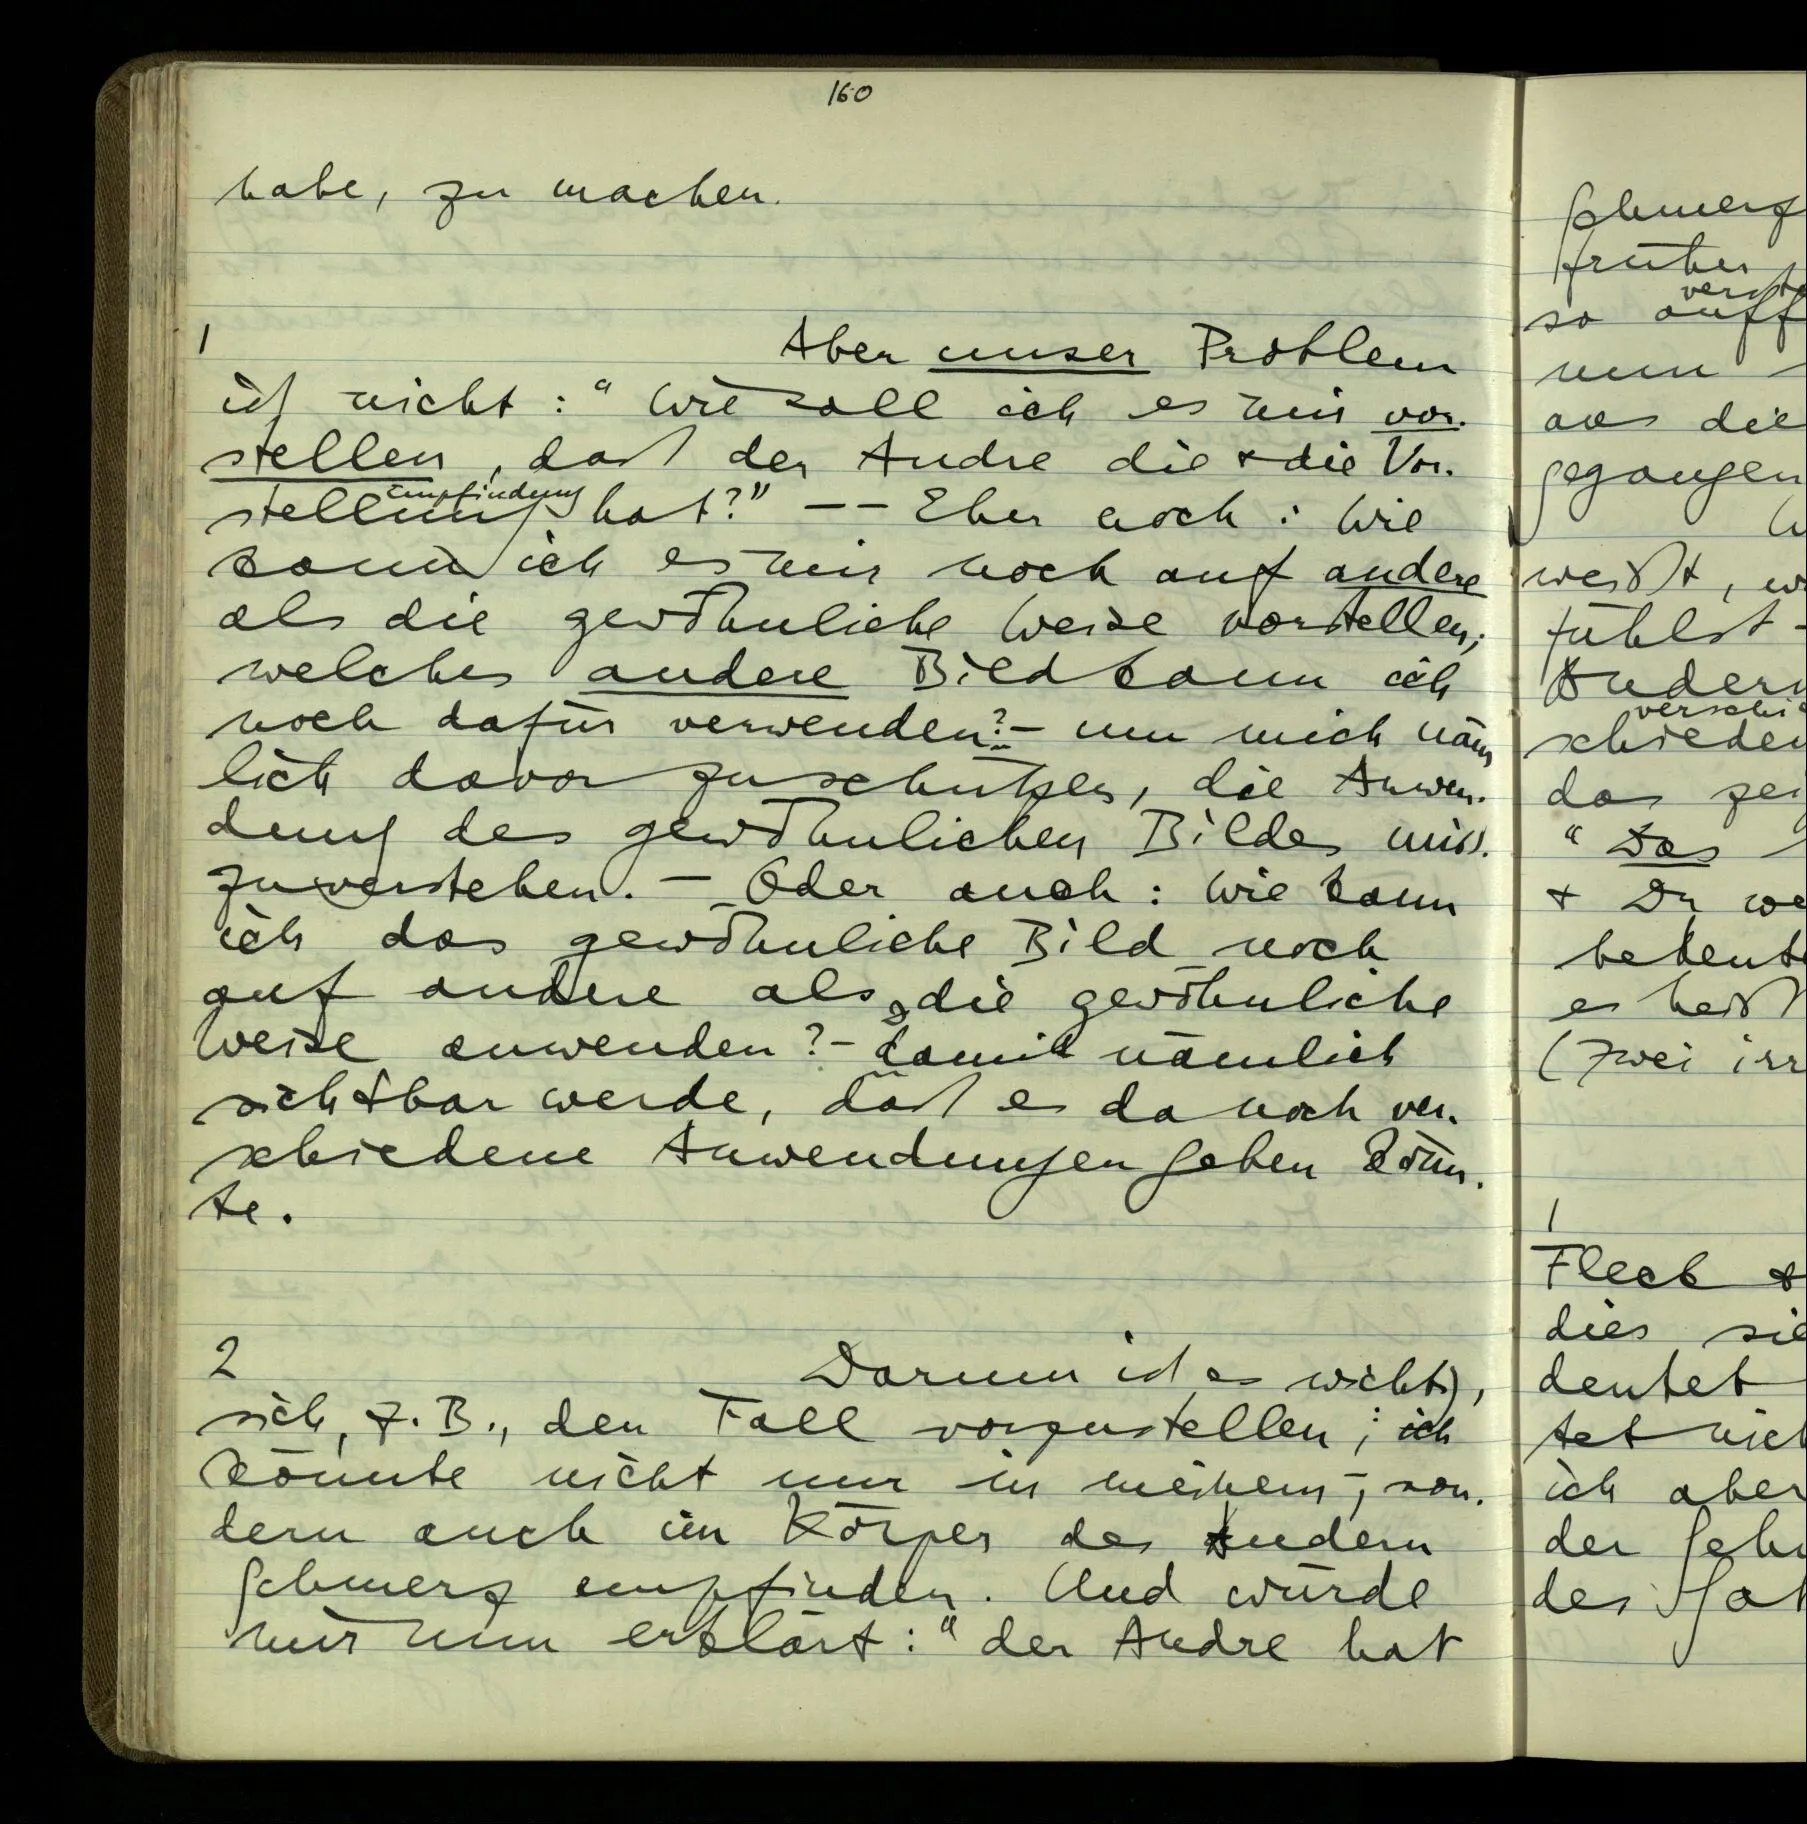 160
habe, zu machen.
1
Aber unser Problem
ist nicht: “Wie soll ich es mir vor-
stellen, daß der Andre die + die Vor-
empfindung
stellung hat?” –– Eher noch: Wie
kann ich es mir noch auf andere
als die gewöhnliche Weise vorstellen;
welches andere Bild kann ich
noch dafür verwenden? – um mich näm-
lich davor zu schützen, die Anwen-
dung des gewöhnlichen Bildes miß-
zuverstehen. – Oder auch: Wie kann
ich das gewöhnliche Bild noch
auf andere als die gewöhnliche
Weise anwenden? – damit nämlich
sichtbar werde, daß es da noch ver-
schiedene Anwendungen geben könn-
te.
2
Darum ist es wichtig,
sich, z.B., den Fall vorzustellen; ich
könnte nicht nur in meinem –, son-
dern auch im Körper des Andern
Schmerz empfinden. Und würde
mir nun erklärt: “der Andre hat
Schmerz
früher
so auff
nun
aus die
gegangen
weißt, w
fühlst –
Andern
verschie
schieden
das zei
“Das
+ Du we
bedeute
es heiß
(Zwei irr
1
Fleck +
dies sie
deutet
tet nich
ich aber
der
des